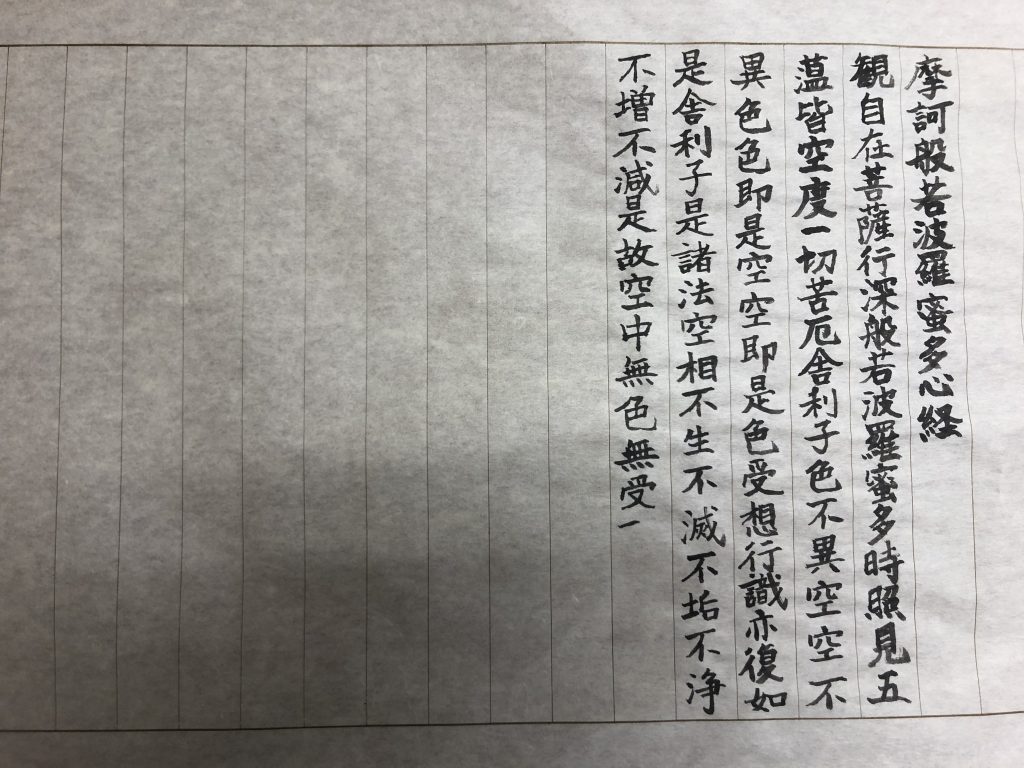 摩訶般若波羅蜜多心経
観自在菩薩行深般若波羅蜜多時照見五
蕰皆空度一切苦厄舎利子色不異空空不
異色色即是空空即是色受想行識亦復如
是舎利子是諸法空相不生不滅不垢不浄
不増不減是故空中無色無受一